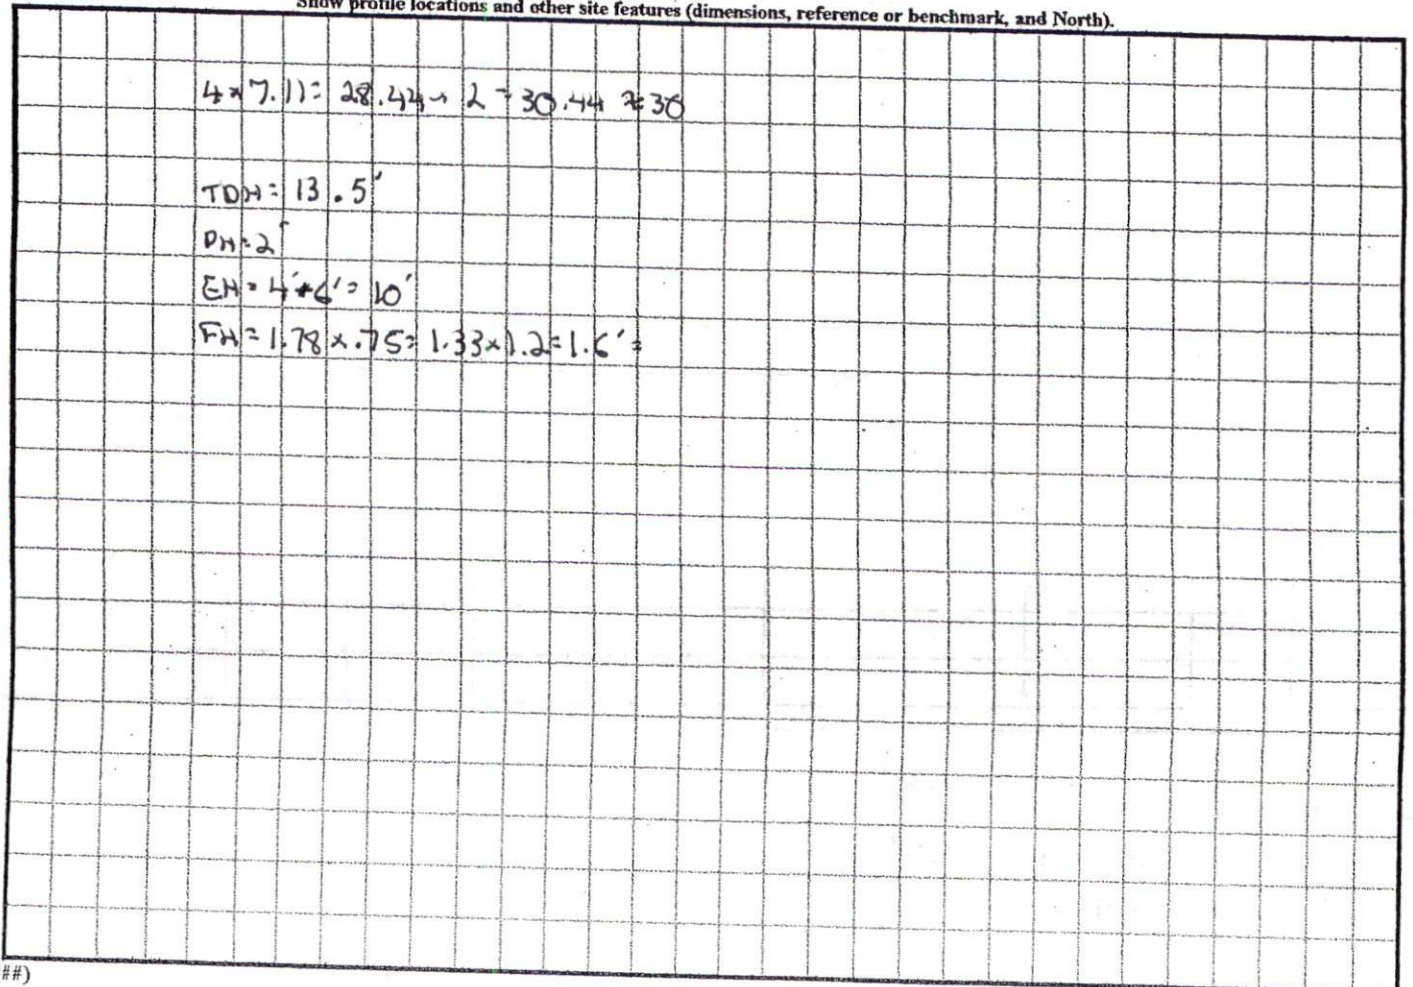 Show profile locations and other site features (dimensions, reference or benchmark, and North).
4 x 7.11 = 28.44 + 2 = 30.44 ≈ 30
TDH = 13.5'
PH = 2'
EH = 4' + 6' = 10'
FH = 1.78 x .75 = 1.33 x 1.2 = 1.6' =
##)